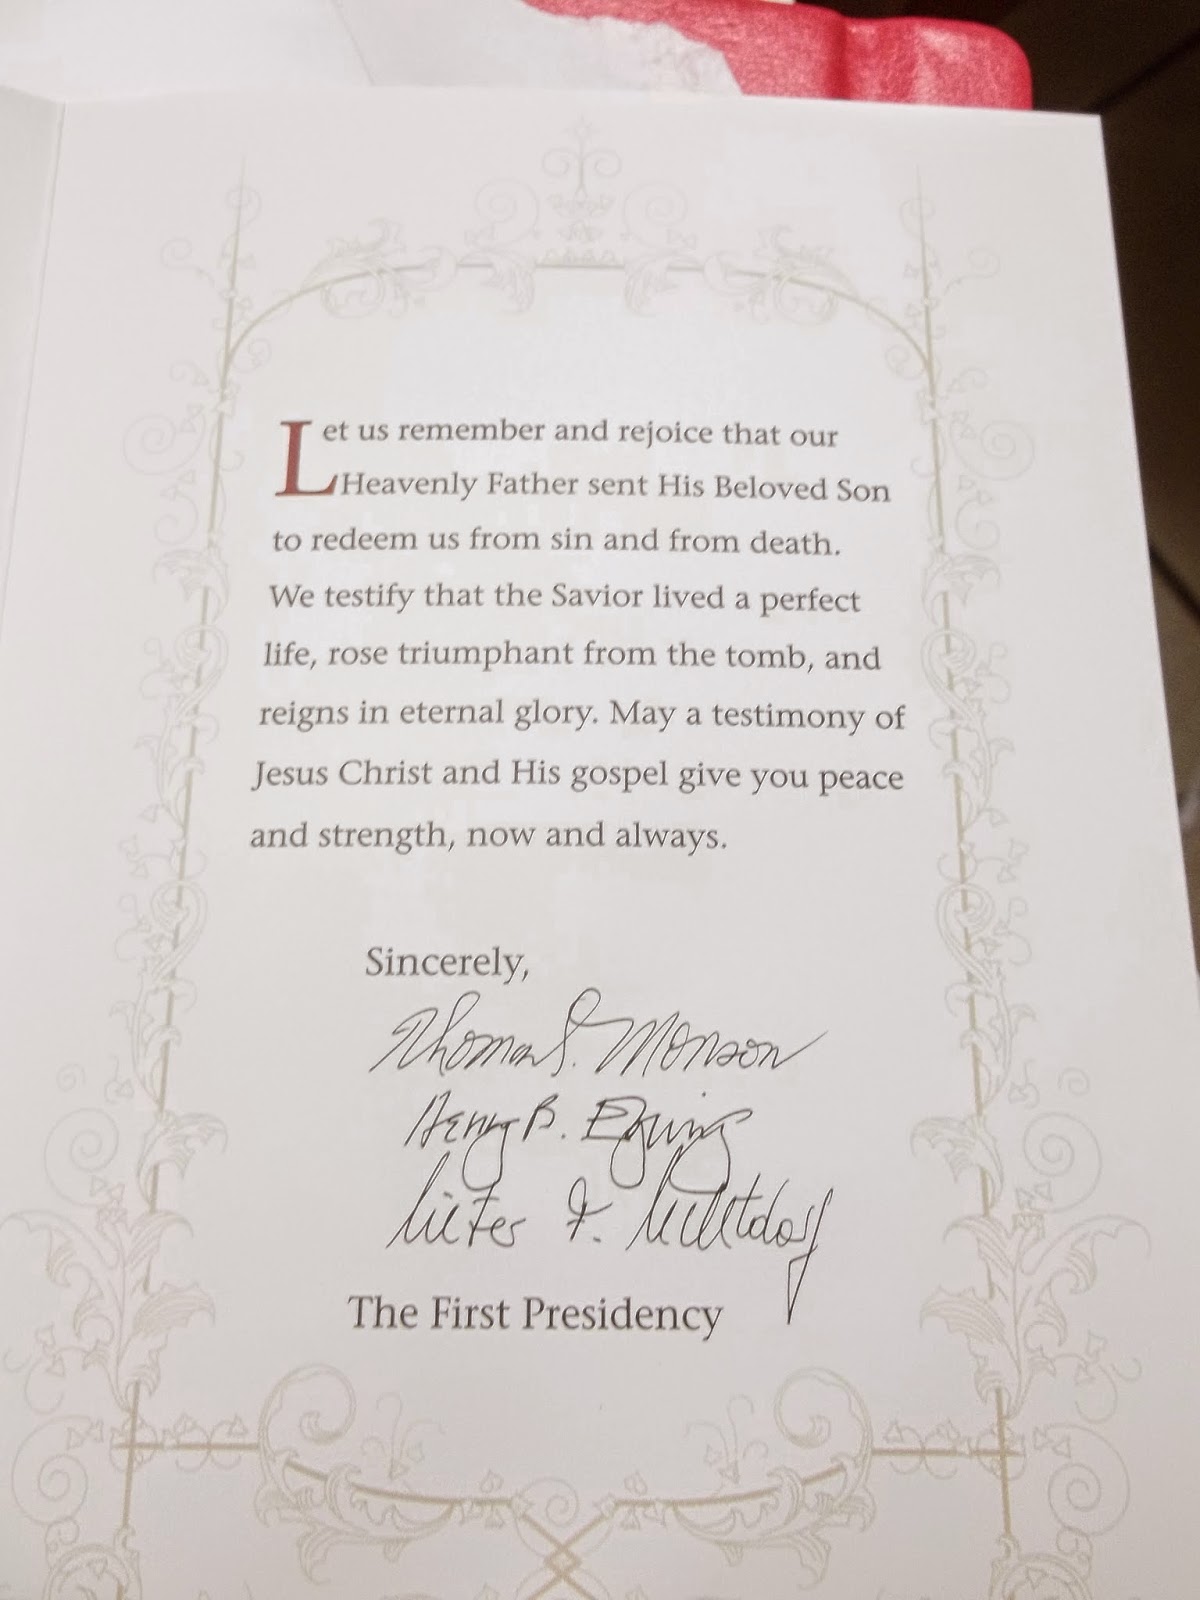 Let us remember and rejoice that our
Heavenly Father sent His Beloved Son
to redeem us from sin and from death.
We testify that the Savior lived a perfect
life, rose triumphant from the tomb, and
reigns in eternal glory. May a testimony of
Jesus Christ and His gospel give you peace
and strength, now and always.
Sincerely,
Thomas S. Monson
Henry B. Eyring
Dieter F. Uchtdorf
The First Presidency